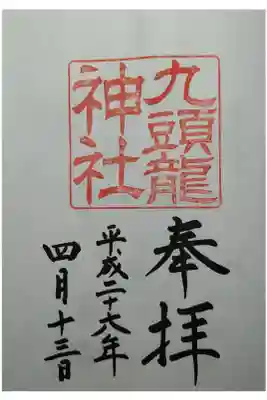 九頭龍
神社
奉拝
平成二十六年
四月十三日